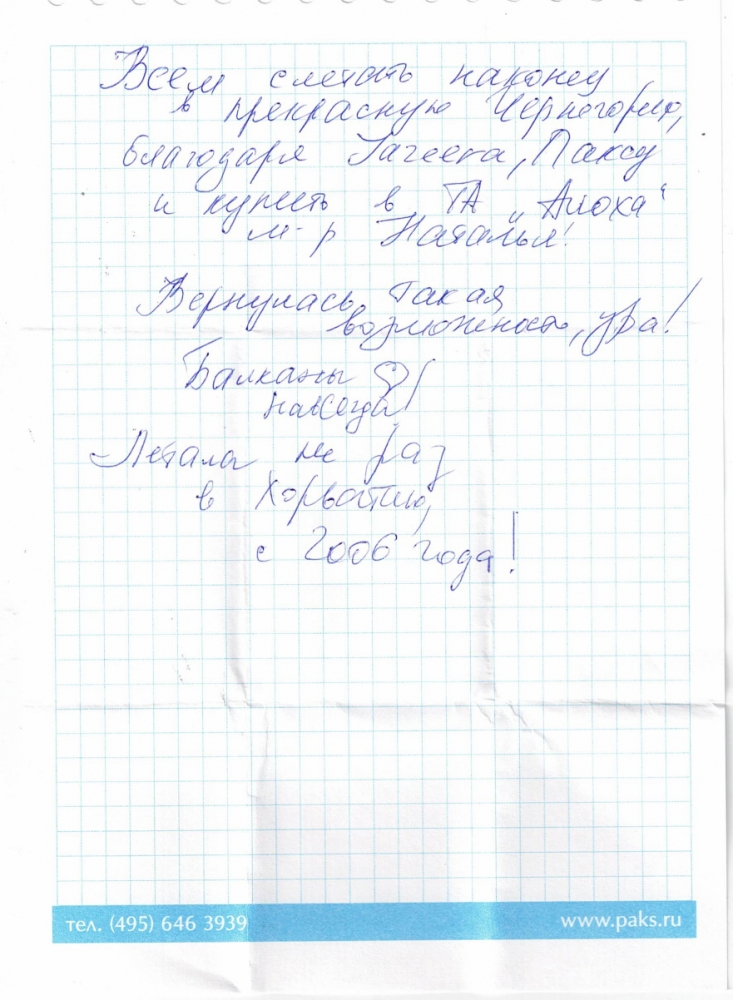 Всем слетать наконец
в прекрасную Черногорию,
благодаря Паксу
и купить в ТА „Алоха“
м-р Наталья!
Вернулась такая
возможность, ура!
Балканы
навсегда!
Летала не раз
в Хорватию,
с 2006 года!
тел. (495) 646 3939
www.paks.ru